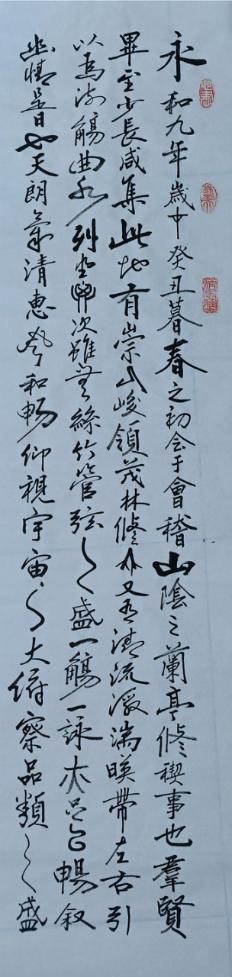 永和九年歲在癸丑暮春之初会于會稽山陰之蘭亭修稧事也羣賢
畢至少長咸集此地有崇山峻領茂林修竹又有清流激湍暎帶左右引
以為流觴曲水列坐其次雖無絲竹管弦之盛一觴一詠亦足以暢叙
幽情是日也天朗氣清惠風和暢仰視宇宙之大俯察品類之盛